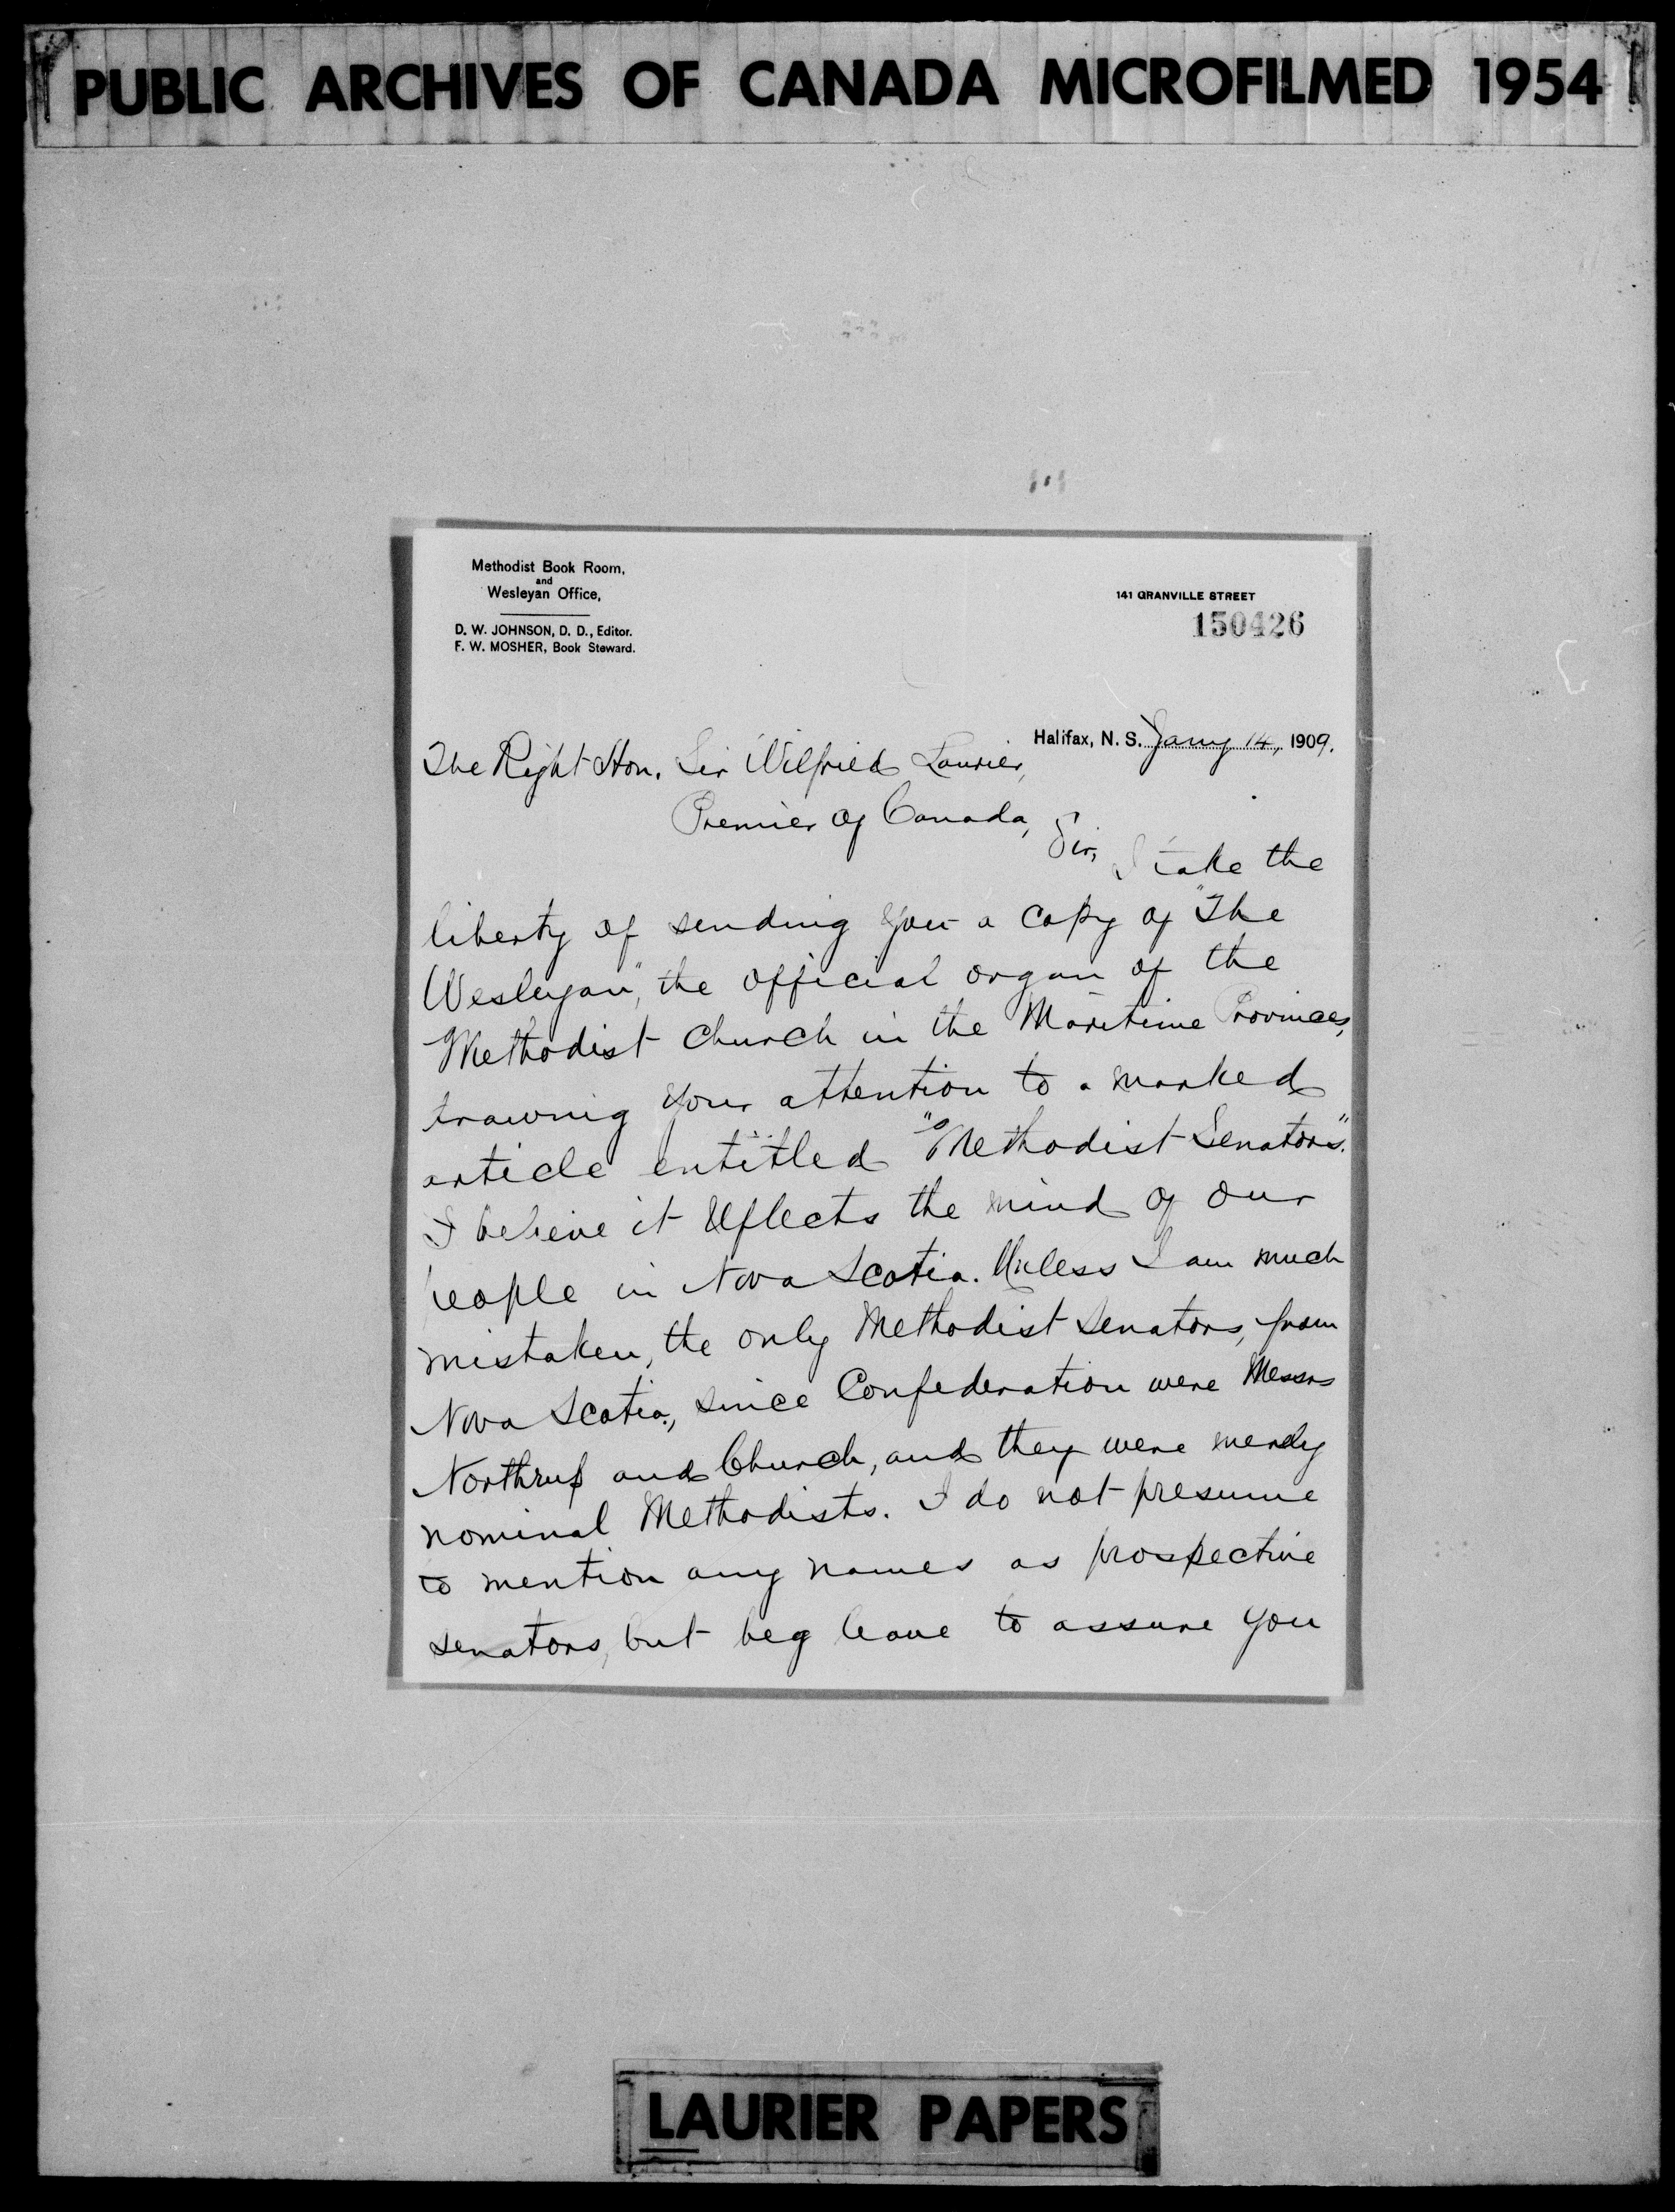 PUBLIC ARCHIVES OF CANADA MICROFILMED 1954
Methodist Book Room,
and
Wesleyan Office,
D. W. JOHNSON, D. D., Editor.
F. W. MOSHER, Book Steward.
141 GRANVILLE STREET
150426
Halifax, N. S. Jany 14, 1909.
The Right Hon. Sir Wilfried Laurier,
Premier of Canada,
Sir, I take the
liberty of sending you a copy of "The
Wesleyan", the official organ of the
Methodist Church in the Maritime Provinces,
drawing your attention to a marked
article entitled "Methodist Senators".
I believe it reflects the mind of our
people in Nova Scotia. Unless I am much
mistaken, the only Methodist Senators, from
Nova Scotia, since Confederation were Messrs
Northrup and Church, and they were merely
nominal Methodists. I do not presume
to mention any names as prospective
senators, but beg leave to assure you
LAURIER PAPERS